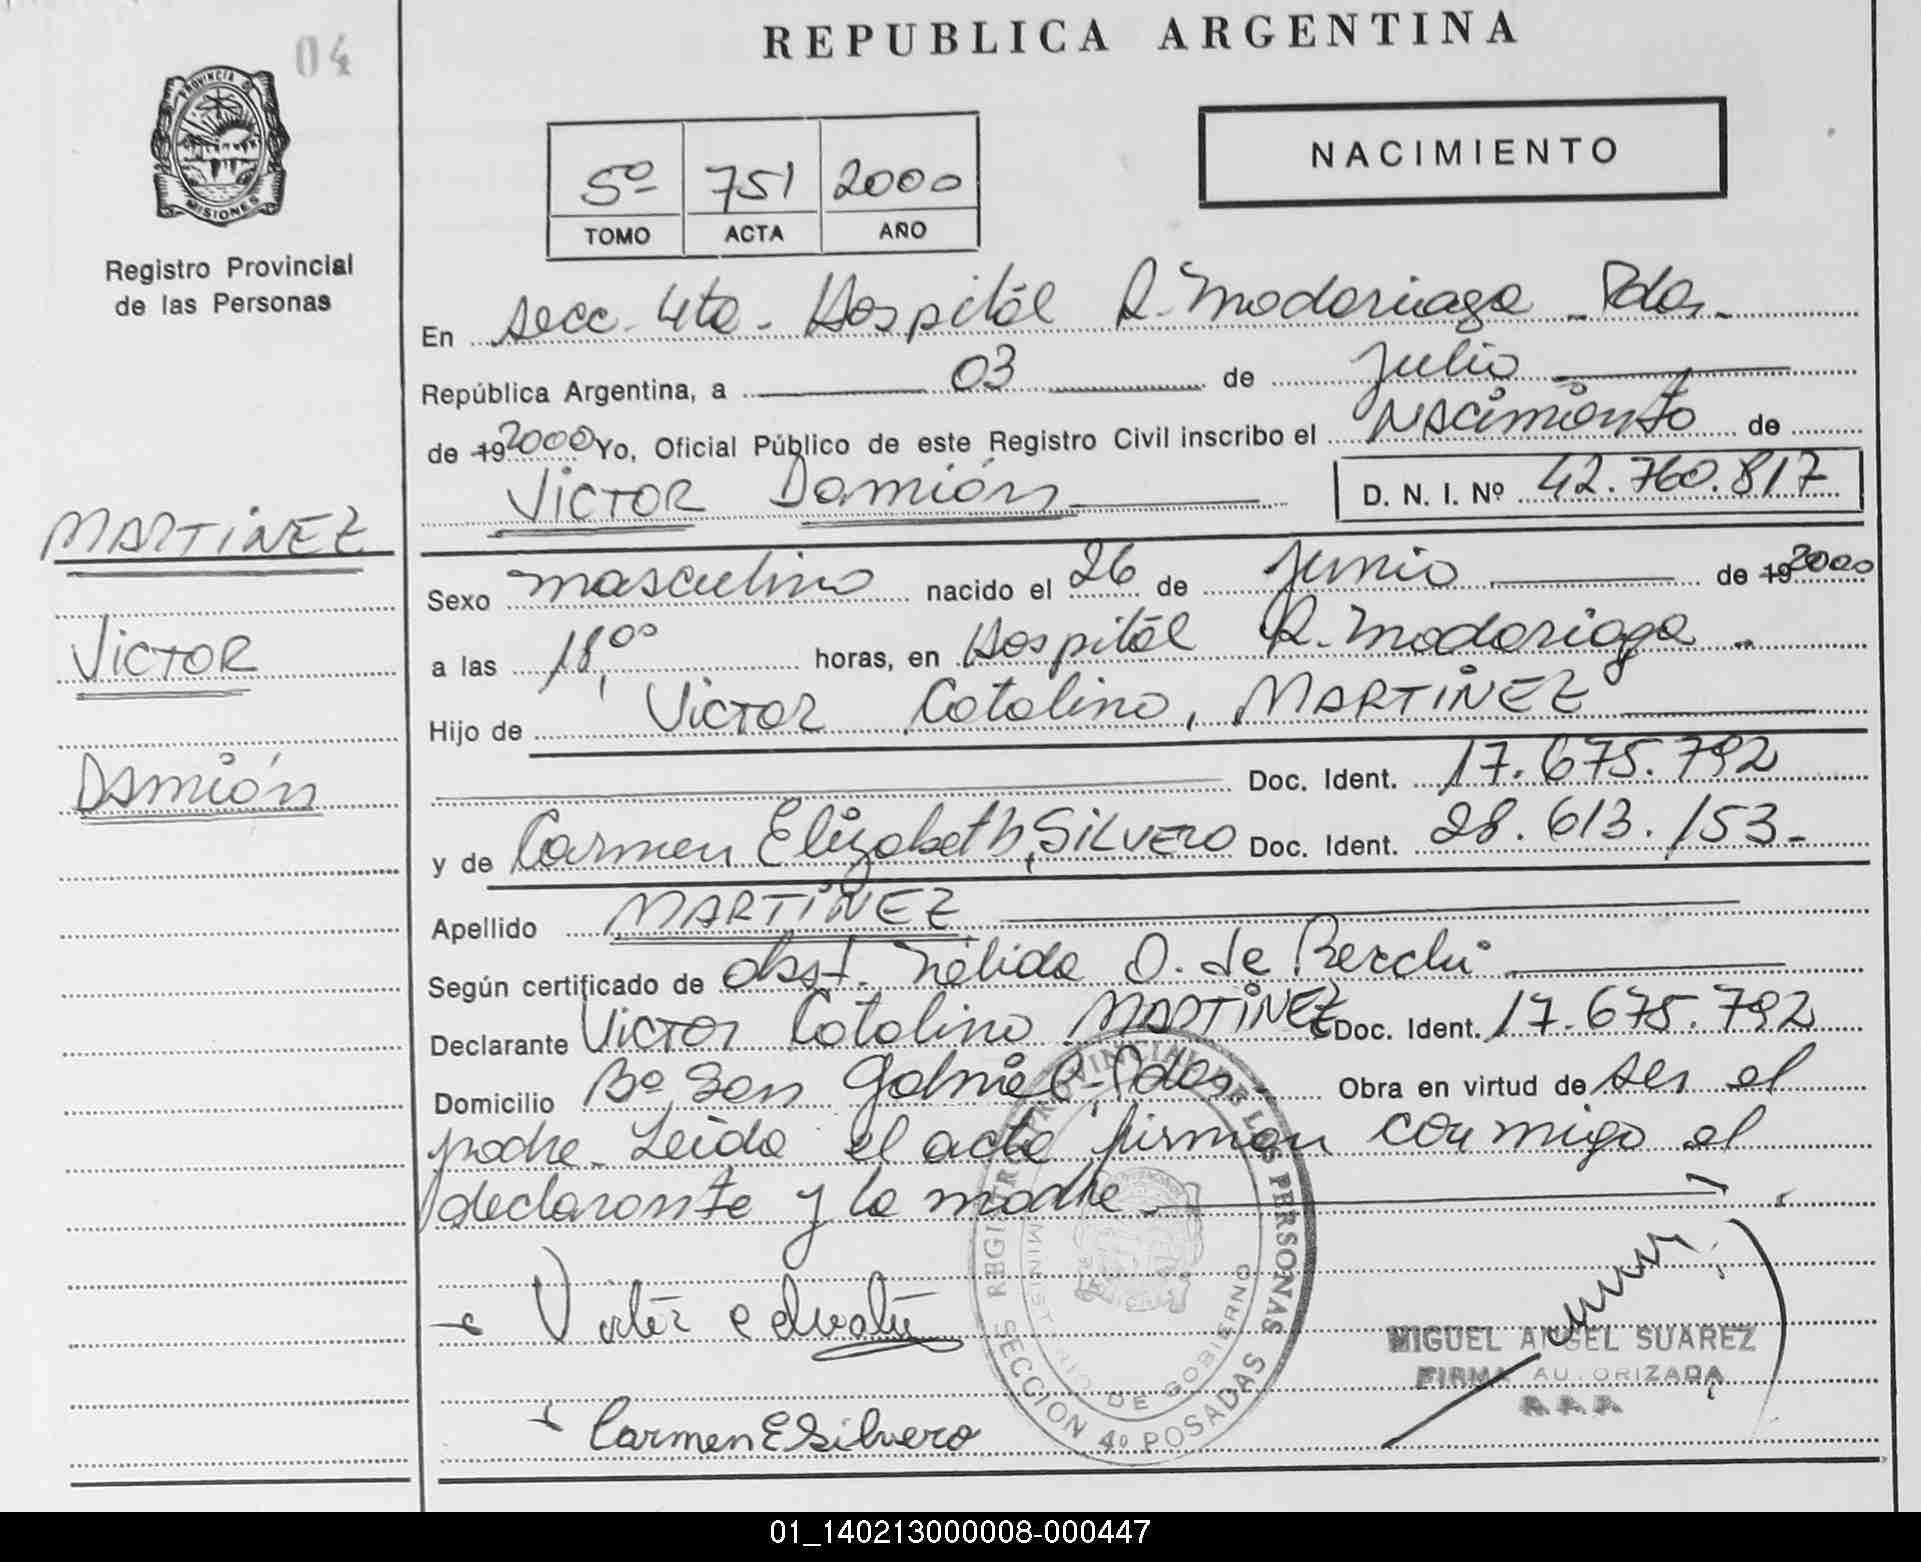 04
REPUBLICA ARGENTINA
PROVINCIA DE
MISIONES
Registro Provincial
de las Personas
5º 751 2000
TOMO ACTA AÑO
NACIMIENTO
En secc. 4ta. Hospital R. Madariaga - Pdas.
República Argentina, a 03 de Julio
de 19 2000 Yo, Oficial Público de este Registro Civil inscribo el Nacimiento de
VICTOR Damián D. N. I. Nº 42.760.817
MARTINEZ
VICTOR
Damián
Sexo masculino nacido el 26 de Junio de 19 2000
a las 18,00 horas, en Hospital R. Madariaga
Hijo de Victor Catalino, MARTINEZ
Doc. Ident. 17.675.792
y de Carmen Elizabeth, SILVERO Doc. Ident. 28.613.153-
Apellido MARTINEZ
Según certificado de obst. Nélida O. de
Declarante Victor Catalino MARTINEZ Doc. Ident. 17.675.792
Domicilio Bº San Gabriel-Pdas. Obra en virtud de ser el
padre. Leida el acta firman conmigo el
declarante y la madre
REGISTRO PROVINCIAL DE LAS PERSONAS
MINISTERIO DE GOBIERNO
SECCION 4º POSADAS
MIGUEL ANGEL SUAREZ
FIRMA AUTORIZADA
Carmen E Silvero
01_140213000008-000447